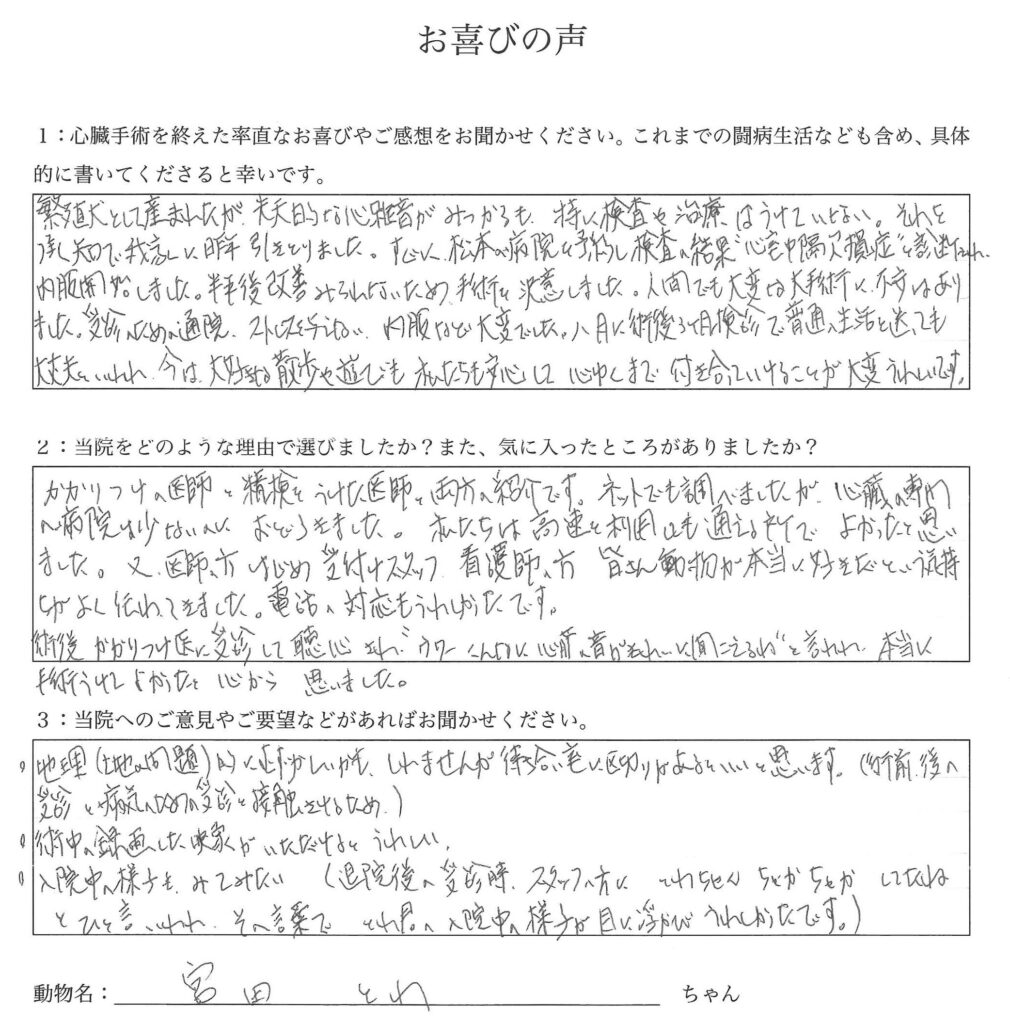 お喜びの声
1：心臓手術を終えた率直なお喜びやご感想をお聞かせください。これまでの闘病生活なども含め、具体
的に書いてくださると幸いです。
繁殖犬として産まれたが、先天的な心雑音がみつかるも、特に検査や治療はうけていない。それを
承知で我家に昨年引きとりました。すぐに、松本の病院を予約し検査の結果"心室中隔欠損症"と診断され、
内服開始しました。半年後改善みられないため、手術を決意しました。人間でも大変な大手術に、不安はあり
ました。受診のための通院、ストレスを与えない、内服など大変でした。八月に術後3ヶ月検診で普通の生活を送っても
大丈夫といわれ、今は、大好きな散歩や遊びも私たちも安心して心ゆくまで付き合っていけることが大変うれしいです。
2：当院をどのような理由で選びましたか？また、気に入ったところがありましたか？
かかりつけの医師と精検をうけた医師と両方の紹介です。ネットでも調べましたが、心臓の専門
の病院は少ないのにおどろきました。私たちは高速を利用しても通える所でよかったと思い
ました。又、医師の方はじめ受付けスタッフ、看護師の方皆さん動物が本当に好きだという気持
ちがよく伝わってきました。電話の対応もうれしかったです。
術後かかりつけ医に受診して聴心され、"ウワーこんなに心臓の音がきれいに聞こえるね"と言われ、本当に
手術うけてよかったと心から思いました。
3：当院へのご意見やご要望などがあればお聞かせください。
地理（土地の問題）的にむずかしいかも、しれませんが待合い室に区切りがあるといいと思います。（術前、後の
受診と病気のための受診と接触をさけるため）
術中の録画した映像がいただけるとうれしい。
入院中の様子も、みてみたい（退院後の受診時、スタッフの方に とわちゃん ちょかちょか してたね
とひと言いわれ その言葉で とわ君の入院中の様子が目に浮かびうれしかったです。）
動物名：宮田 とわ ちゃん